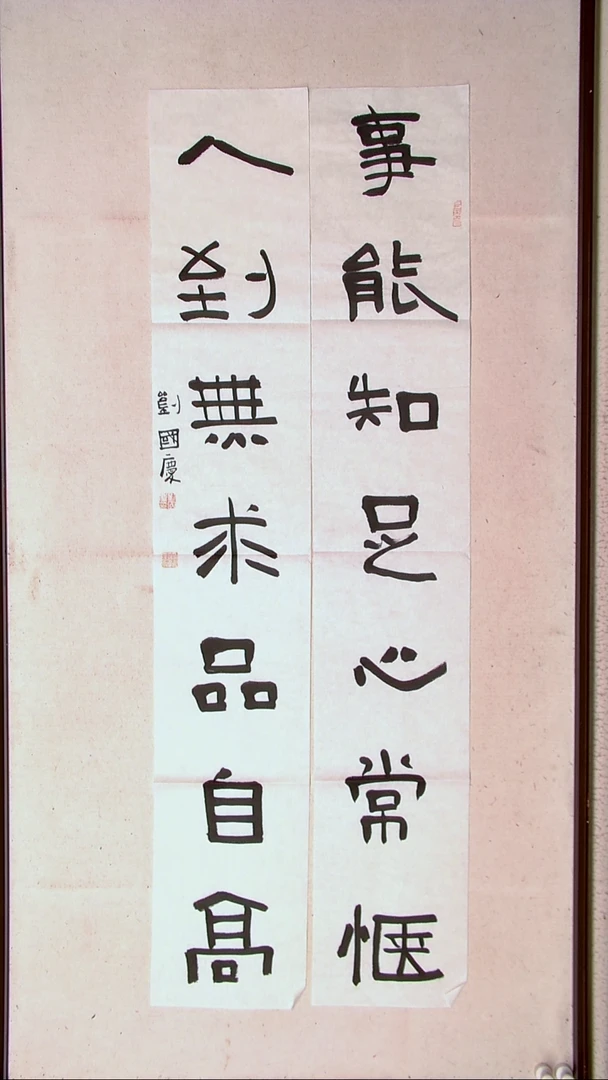 事能知足心常愜
人到無求品自高
劉國慶